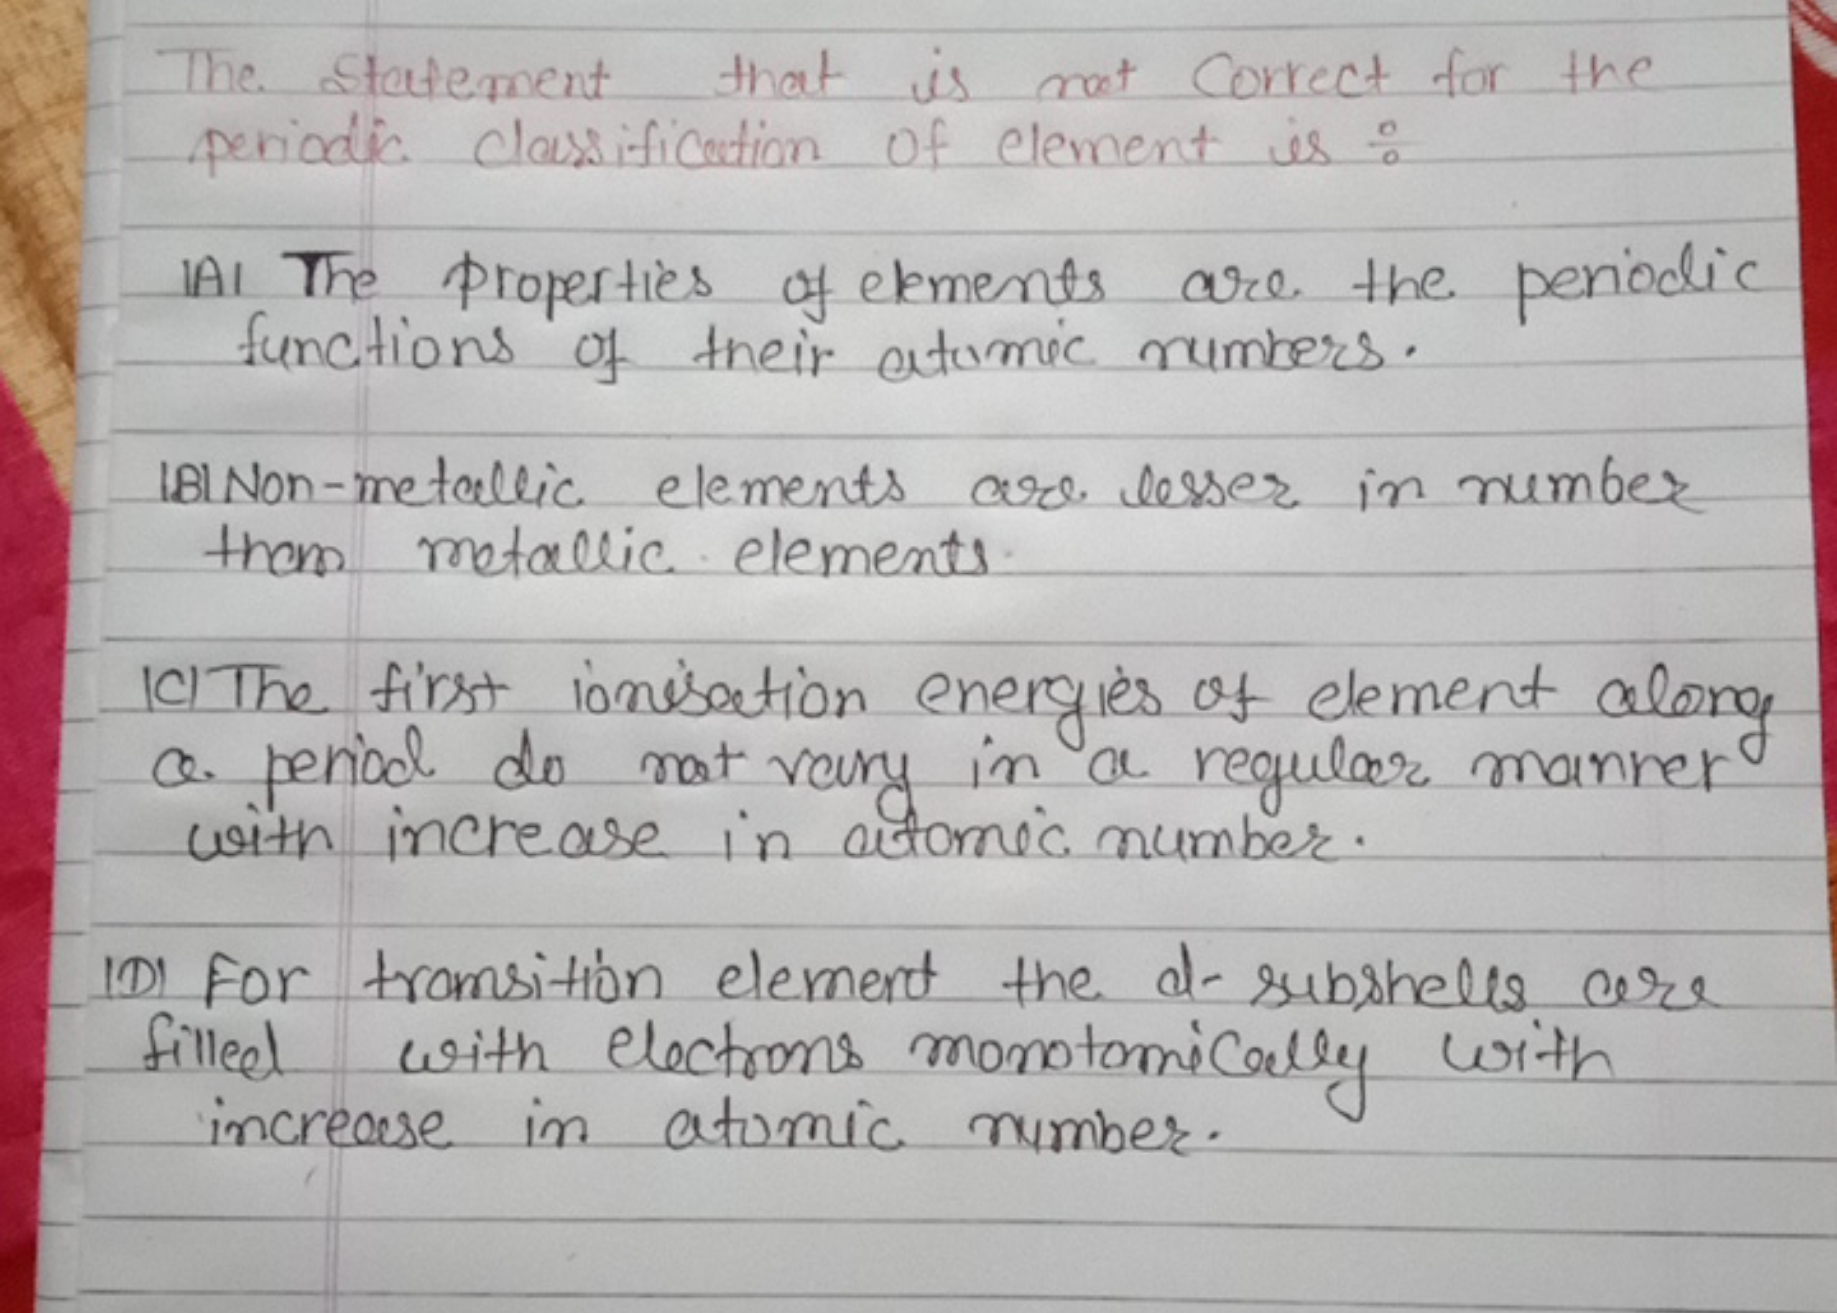 The Statement that is not Correct for the
periodic classification of element is :
(A) The properties of elements are the periodic
functions of their atomic numbers.
(B) Non-metallic elements are lesser in number
than metallic elements.
(C) The first ionisation energies of element along
a period do not vary in a regular manner
with increase in atomic number.
(D) For transition element the d-subshells are
filled with electrons monotonically with
increase in atomic number.